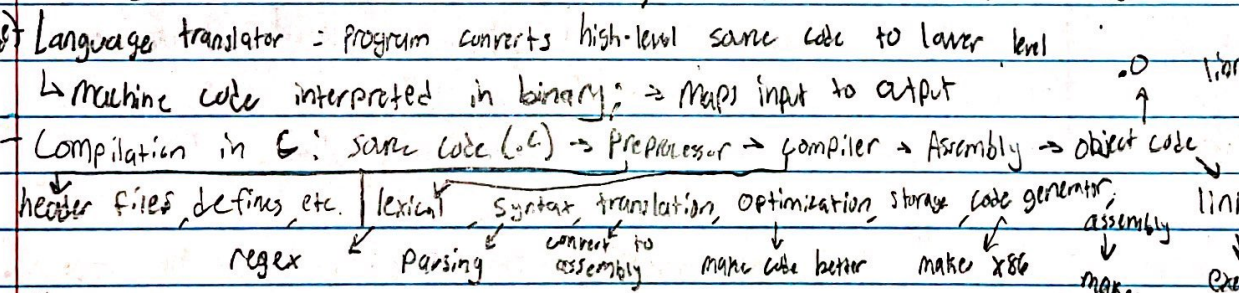 Language translator = program converts high-level source code to lower level
.O
↳ Machine code interpreted in binary; → Maps input to output
- Compilation in C: source code (.c) → Preprocessor → compiler → Assembly → object code
header files, defines, etc. | lexical, syntax, translation, optimization, storage, code generator, assembly
regex parsing convert to assembly make code better make x86